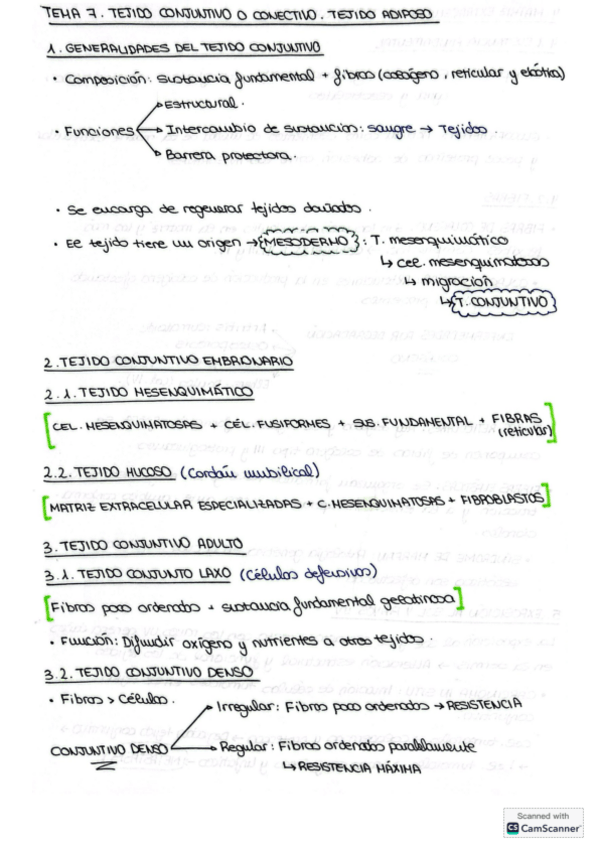 TEMA 7. TEJIDO CONJUNTIVO O CONECTIVO. TEJIDO ADIPOSO
1. GENERALIDADES DEL TEJIDO CONJUNTIVO
• Composición: sustancia fundamental + fibras (colágeno, reticular y elástica)
• Funciones
Estructural.
Intercambio de sustancias: sangre → Tejidos.
Barrera protectora.
• Se encarga de regenerar tejidos dañados.
• El tejido tiene un origen → {MESODERMO}: T. mesenquimático
↳ cél. mesenquimatosas
↳ migración
↳ T. CONJUNTIVO
2. TEJIDO CONJUNTIVO EMBRIONARIO
2.1. TEJIDO MESENQUIMÁTICO
[CEL. MESENQUIMATOSAS + CÉL. FUSIFORMES + SUS. FUNDAMENTAL + FIBRAS (reticular)]
2.2. TEJIDO MUCOSO (Cordón umbilical)
[MATRIZ EXTRACELULAR ESPECIALIZADAS + C. MESENQUIMATOSAS + FIBROBLASTOS]
3. TEJIDO CONJUNTIVO ADULTO
3.1. TEJIDO CONJUNTO LAXO (Células defensivas)
[Fibras poco ordenadas + sustancia fundamental gelatinosa]
• Función: Difundir oxígeno y nutrientes a otros tejidos.
3.2. TEJIDO CONJUNTIVO DENSO
• Fibras > Células.
CONJUNTIVO DENSO
Irregular: Fibras poco ordenadas → RESISTENCIA
Regular: Fibras ordenadas paralelamente
↳ RESISTENCIA MÁXIMA
Scanned with
CS CamScanner